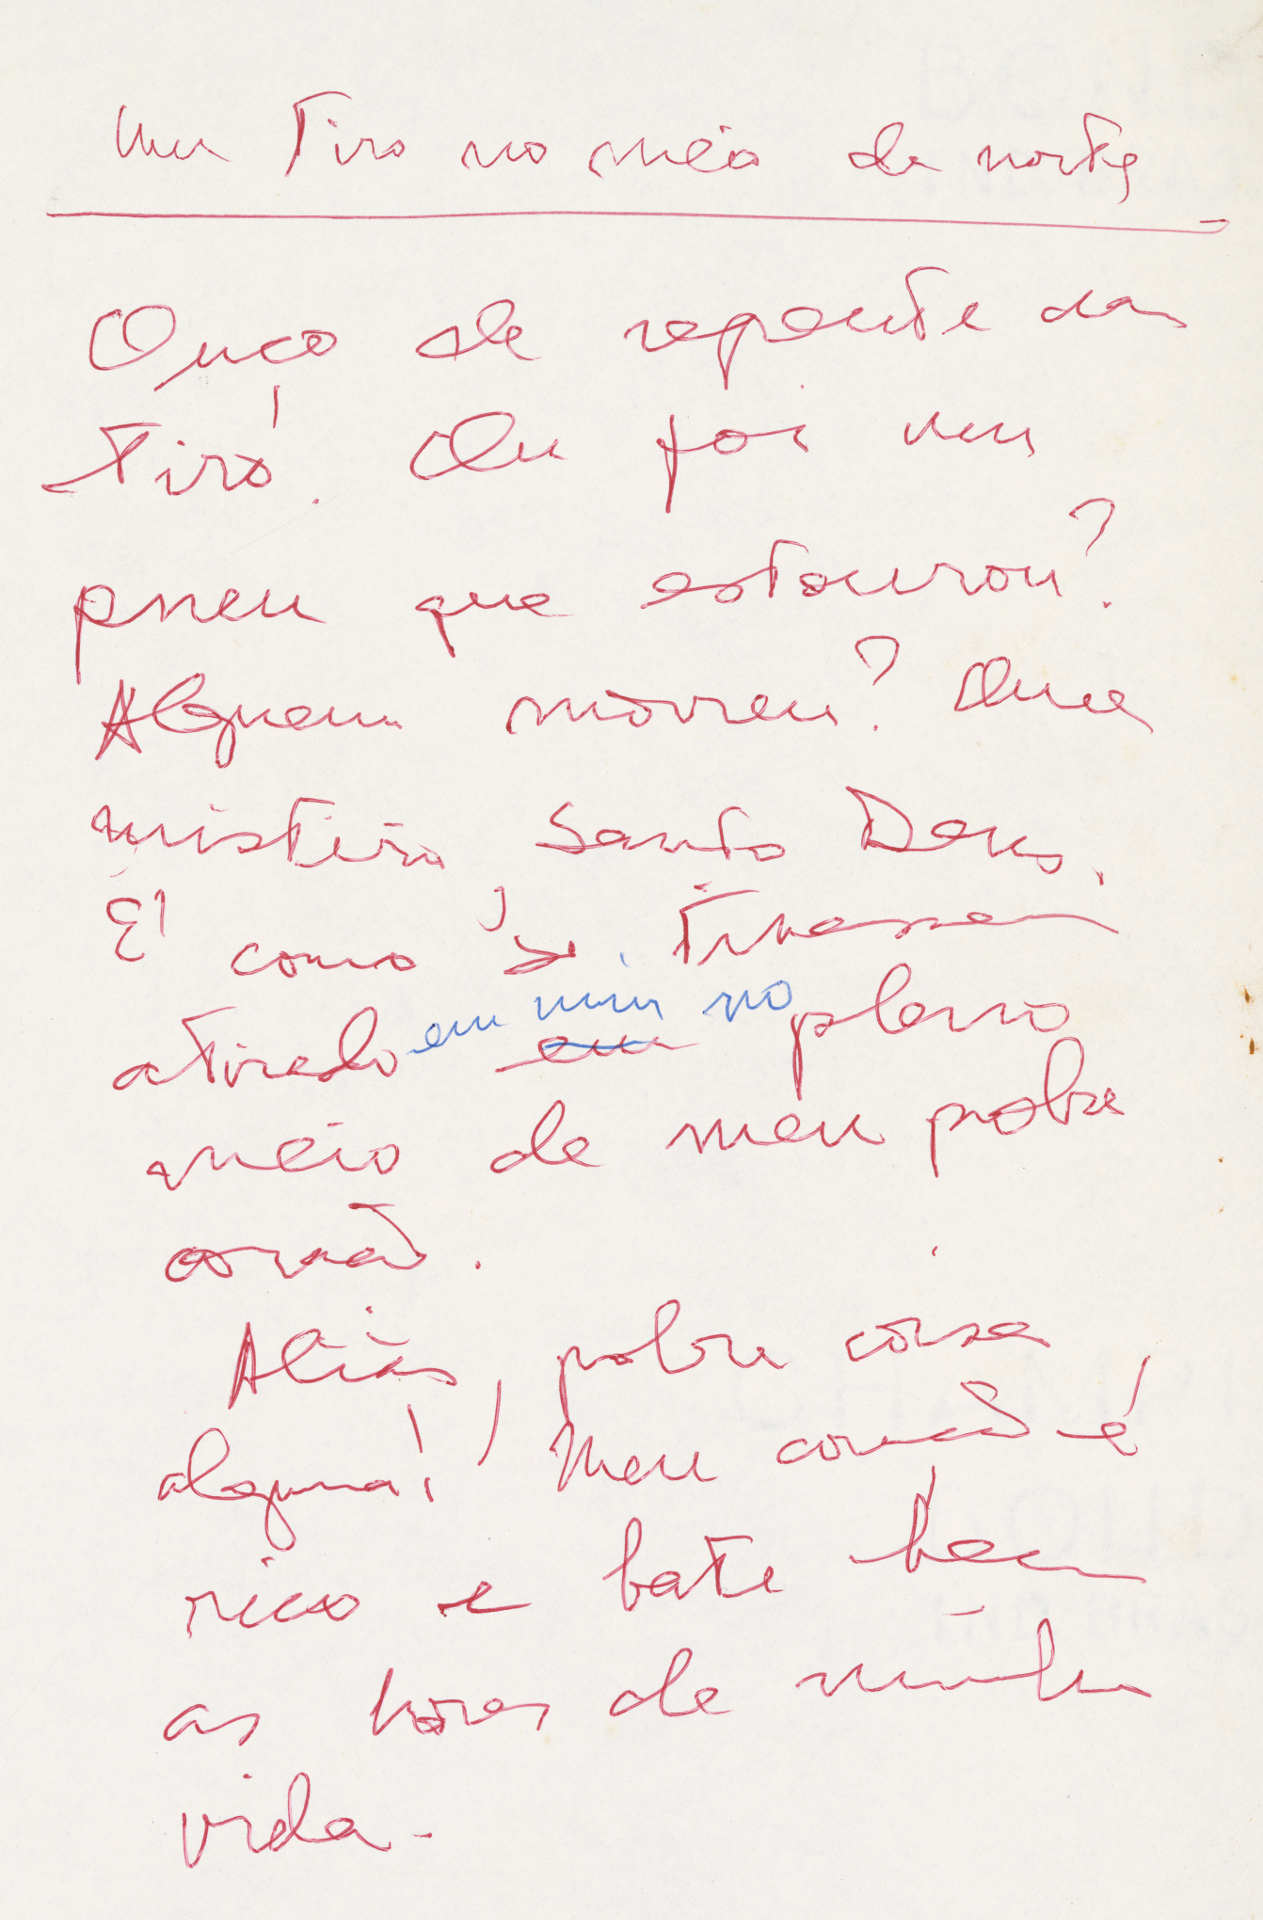 Um tiro no meio da noite
Ouço de repente um
tiro. Ou foi um
pneu que estourou?
Alguem morreu? Que
misterio, Santo Deus.
É como se tivessem
atirado em mim no em pleno
meio de meu pobre
coração.
Aliás, pobre coisa
alguma! Meu coração é
rico e bate bem
as horas de minha
vida.